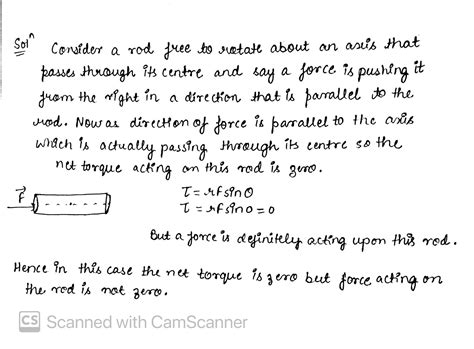 Solⁿ Consider a rod free to rotate about an axis that
passes through its centre and say a force is pushing it
from the right in a direction that is parallel to the
rod. Now as direction of force is parallel to the axis
which is actually passing through its centre so the
net torque acting on this rod is zero.
F⃗
τ = rFsinθ
τ = rFsin0 = 0
But a force is definitely acting upon this rod.
Hence in this case the net torque is zero but force acting on
the rod is not zero.
CS Scanned with CamScanner